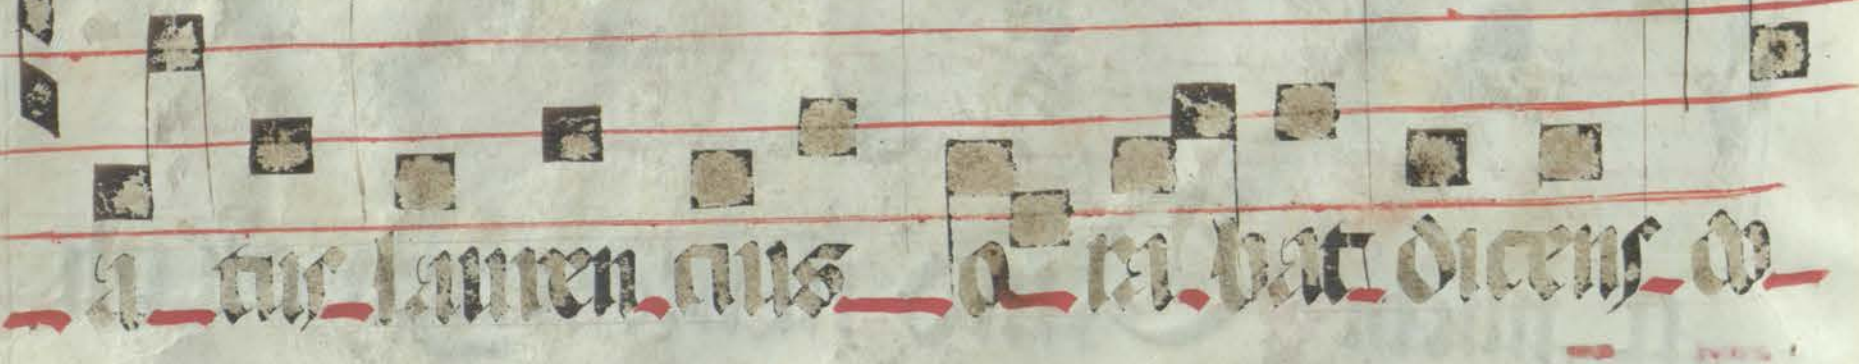 a tus lauren cius o ra bat dicens do